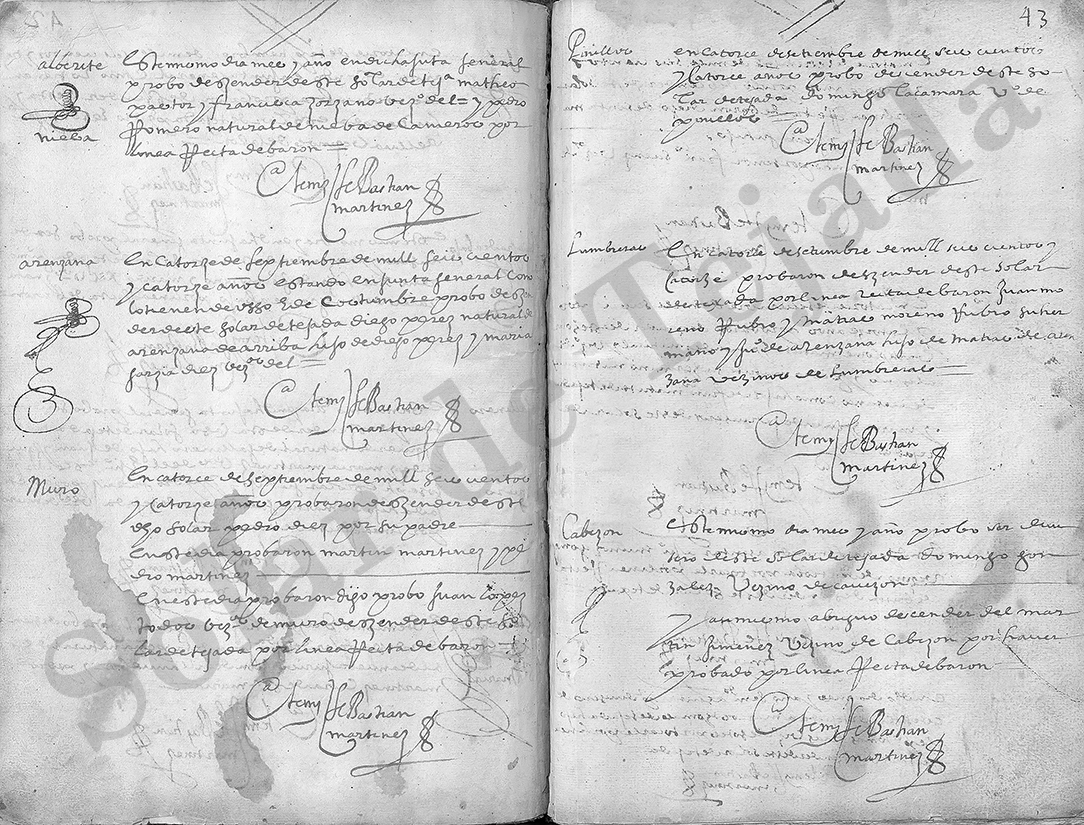 alberite
nieba
Este mismo dia mes y año en dicha junta general
probo deszender deste solar de teja matheo
pastor y francisca zorzano vezos del = y pedro
Romero natural de nieba de Cameros por
linea Recta de baron =
Ante my Sebastian
martinez
arenzana
En Catorze de septiembre de mill seis cientos
y catorze años estando en junta general como
lo tienen de usso y de costumbre probo desz
der deste solar de tejada diego perez natural de
arenzana de arriba hijo de diego perez y maria
garzia diez vezos del =
Ante my Sebastian
martinez
Muro
En catorce de septiembre de mill seis cientos
y catorze años probaron deszender deste
dho solar pedro diez por su padre
En este dia probaron martin martinez y pe
dro martinez
En este dia probaron digo probo juan lopez
todos vezos de muro deszender deste so
lar de tejada por linea Recta de baron
Ante my Sebastian
martinez
43
Pinillos
en catorce de setiembre de mill seis cientos
y catorce años probo descender deste so
lar de tejada domingo lacamara vo de
pinillos
Ante my Sebastian
martinez
Lumbreras
En catorce de setiembre de mill seis cientos y
catorze probaron deszender deste solar
de texada por linea recta de baron Juan mo
reno Rubio y Matias moreno Rubio su her
mano y jo de arenzana hijo de matias de aren
zana vezinos de lumbreras
Ante my Sebastian
martinez
Cabezon
Este mismo dia mes y año probo ser
deste solar de tejada domingo gon
zalez vezino de cavezon
y asi mismo descender del mar
tin ximenez vezino de Cabezon por haver
probado por linea Recta de baron
Ante my Sebastian
martinez
Solar de Tejada